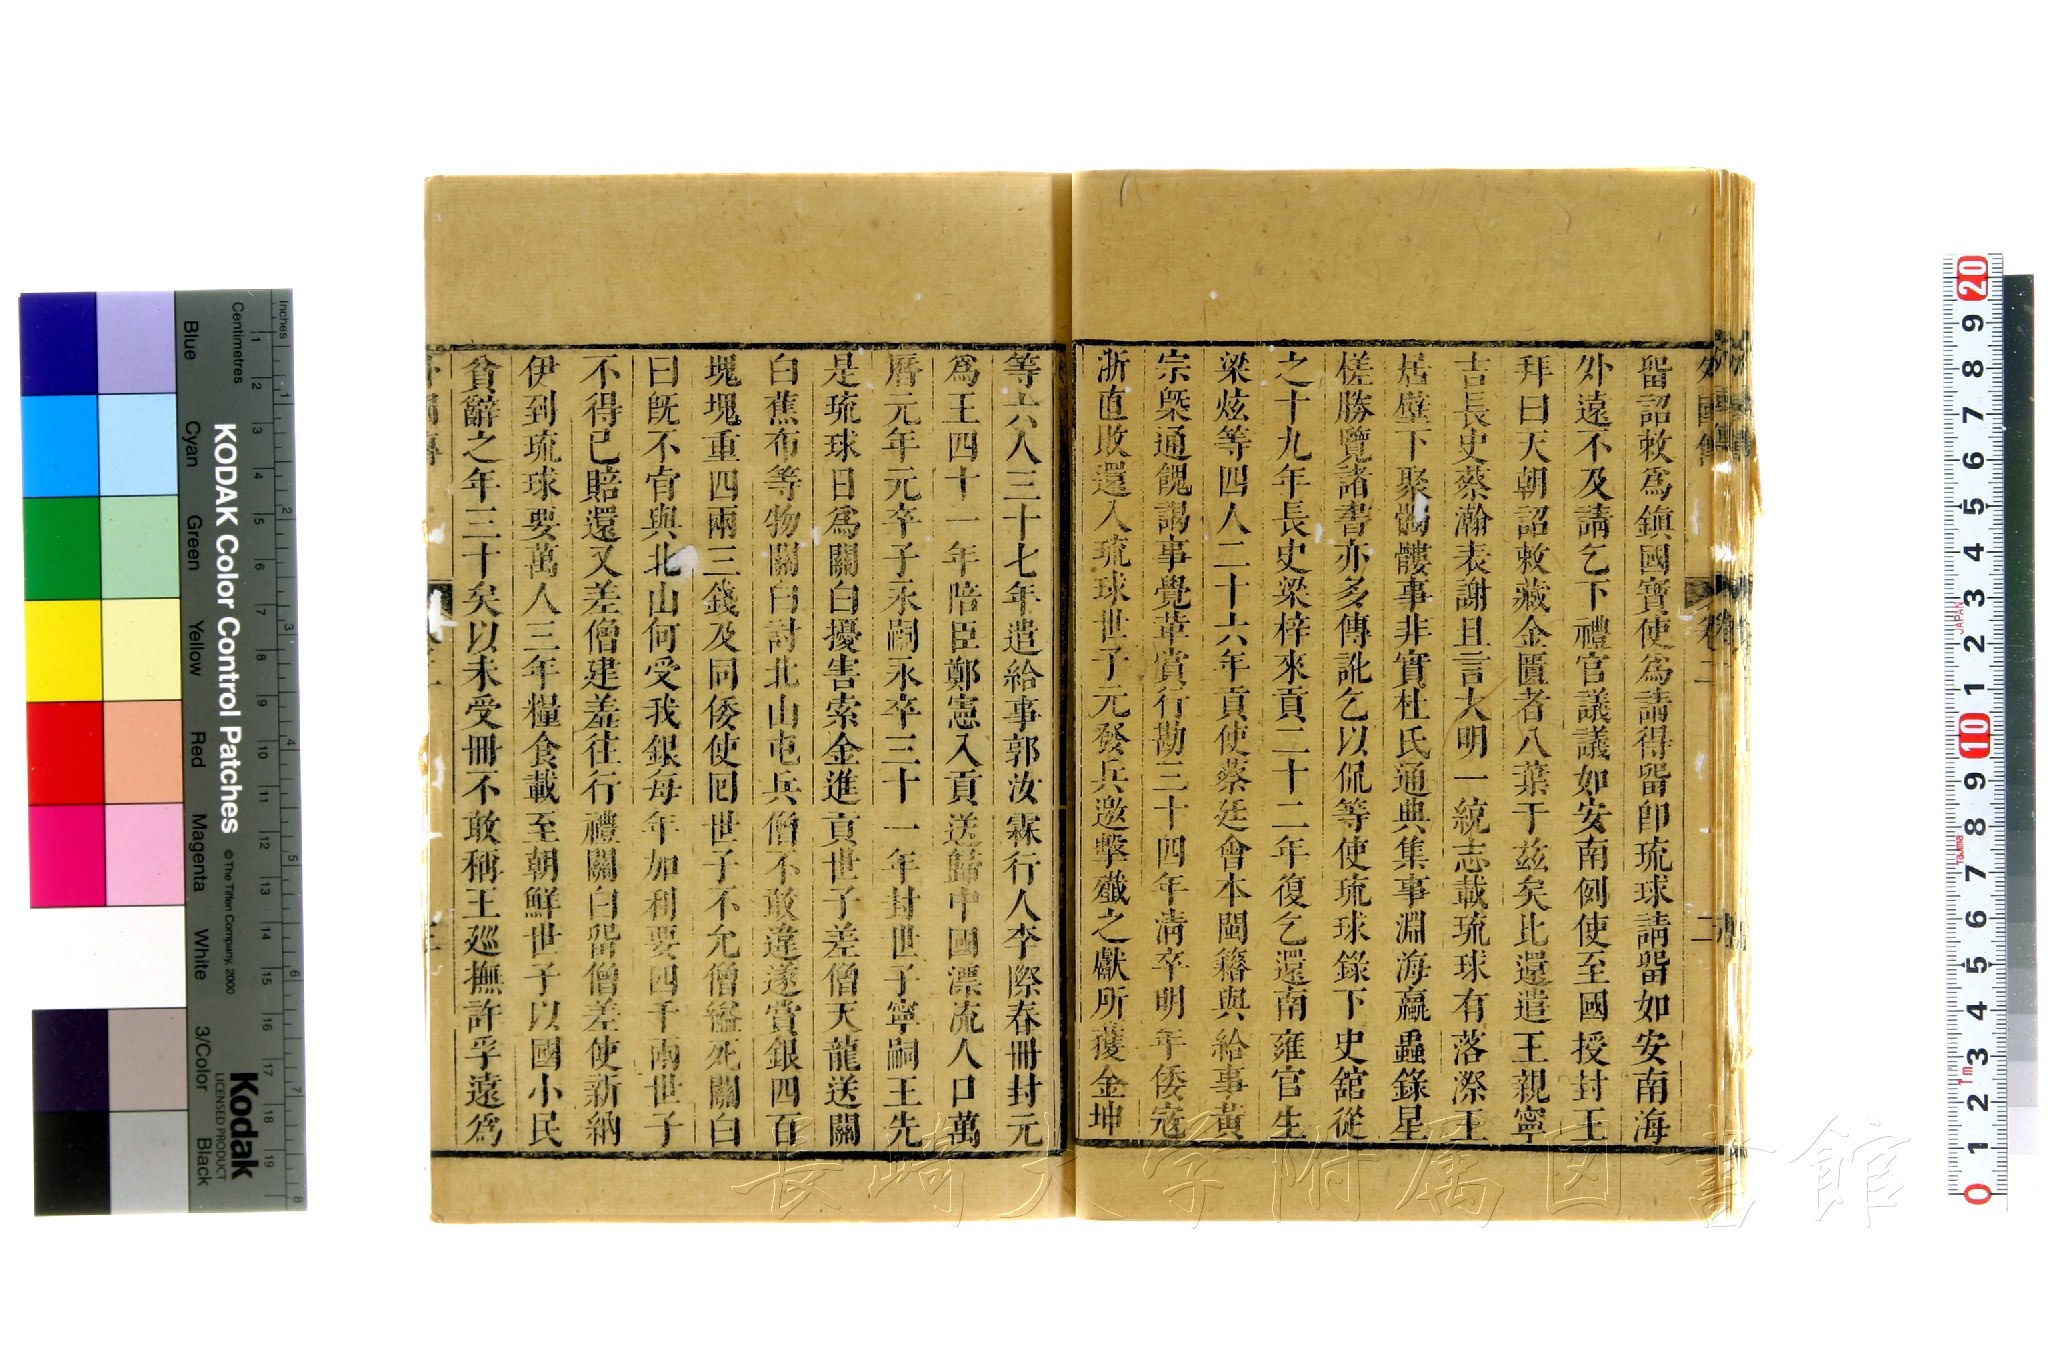 留詔敕爲鎮國寶使爲請得留卽琉球請留如安南海
外遠不及請乞下禮官議議如安南例使至國授封王
拜曰天朝詔敕藏金匱者八葉于兹矣比還遣王親寧
吉長史蔡瀚表謝且言大明一統志載琉球有落漈王
居壁下聚髑髏事非實杜氏通典集事淵海贏蟲錄星
槎勝覽諸書亦多傳訛乞以侃等使琉球錄下史舘從
之十九年長史梁梓來貢二十二年復乞還南雍官生
梁炫等四人二十六年貢使蔡廷會本閩籍與給事黃
宗槩通餽謁事覺革賞行勘三十四年淸卒明年倭寇
浙直敗還入琉球世子元發兵邀擊殲之獻所獲金坤
等六人三十七年遣給事郭汝霖行人李際春冊封元
爲王四十一年陪臣鄭憲入貢送歸中國漂流人口萬
曆元年元卒子永嗣永卒三十一年封世子寧嗣王先
是琉球日爲關白擾害索金進貢世子差僧天龍送關
白蕉布等物關白討北山屯兵僧不敢違遂賞銀四百
塊塊重四兩三錢及同倭使囘世子不允僧縊死關白
曰旣不肯與北山何受我銀每年加利要四千兩世子
不得已賠還又差僧建羞往行禮關白留僧差使新納
伊到琉球要萬人三年糧食載至朝鮮世子以國小民
貧辭之年三十矣以未受冊不敢稱王廵撫許孚遠爲
外國傳
卷二
二
KODAK Color Control Patches
© The Tiffen Company, 2000
Kodak
LICENSED PRODUCT
Inches
Centimetres
Blue
Cyan
Green
Yellow
Red
Magenta
White
3/Color
Black
1 2 3 4 5 6 7 8 9 10 11 12 13 14 15 16 17 18 19
1 2 3 4 5 6 7 8
20 9 8 7 6 5 4 3 2 1 10 9 8 7 6 5 4 3 2 1 0
JAPAN
Tajima
1m
長崎大学附属図書館